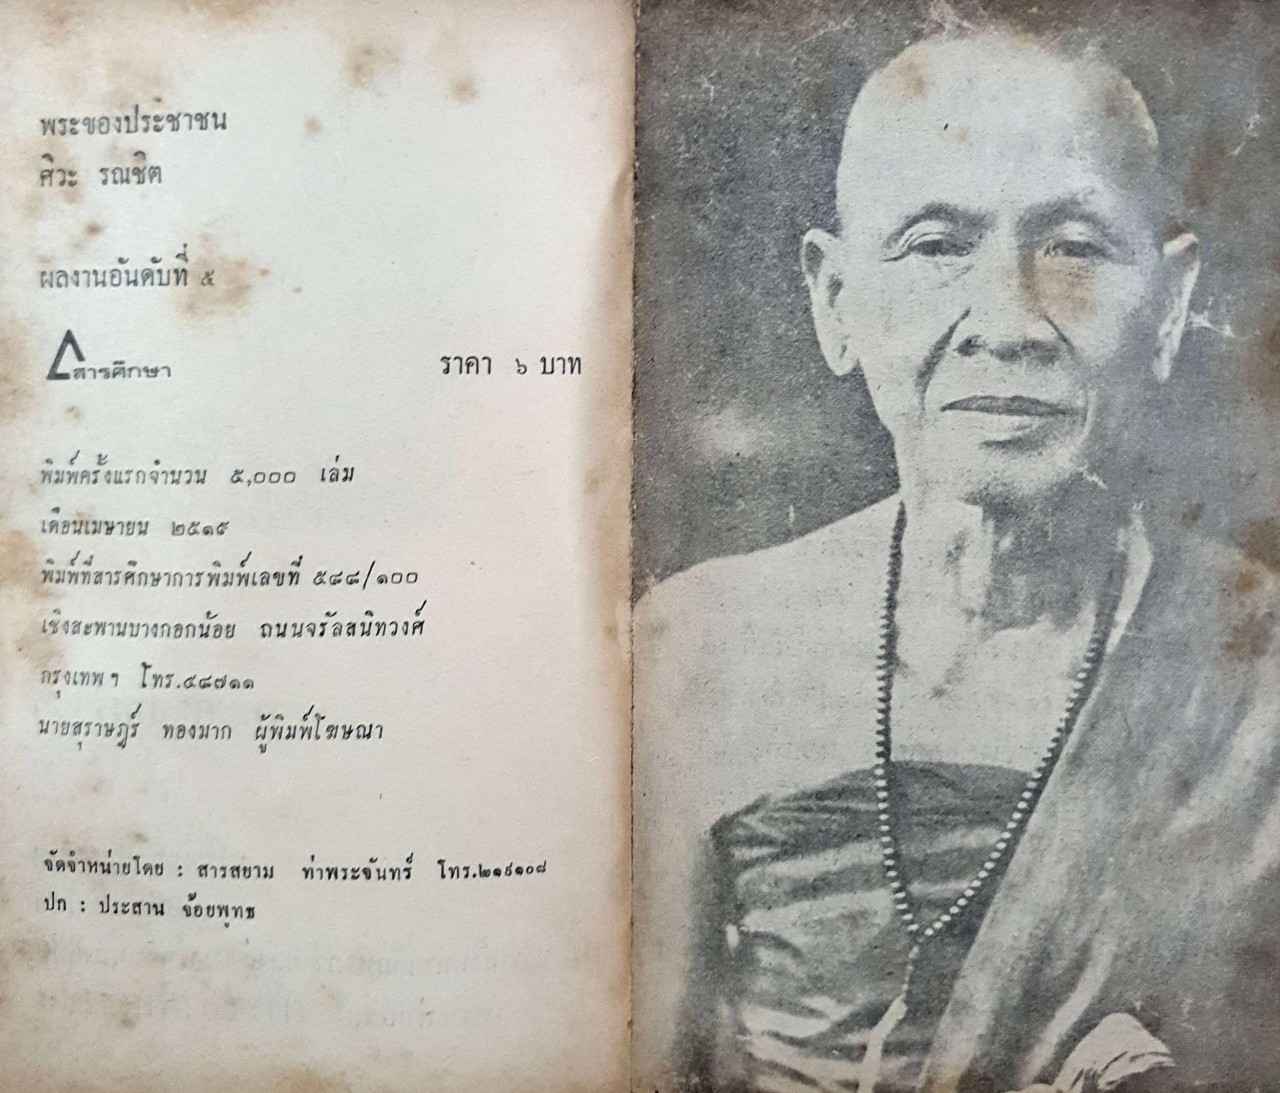 พระของประชาชน
ศิวะ รณชิต
ผลงานอันดับที่ ๕
สารศึกษา
ราคา ๖ บาท
พิมพ์ครั้งแรกจำนวน ๕,๐๐๐ เล่ม
เดือนเมษายน ๒๕๑๙
พิมพ์ที่สารศึกษาการพิมพ์เลขที่ ๕๘๘/๑๐๐
เชิงสะพานบางกอกน้อย ถนนจรัลสนิทวงศ์
กรุงเทพฯ โทร.๔๘๗๑๑
นายสุราษฎร์ ทองมาก ผู้พิมพ์โฆษณา
จัดจำหน่ายโดย : สารสยาม ท่าพระจันทร์ โทร.๒๑๙๑๐๘
ปก : ประสาน จ้อยพูทธ